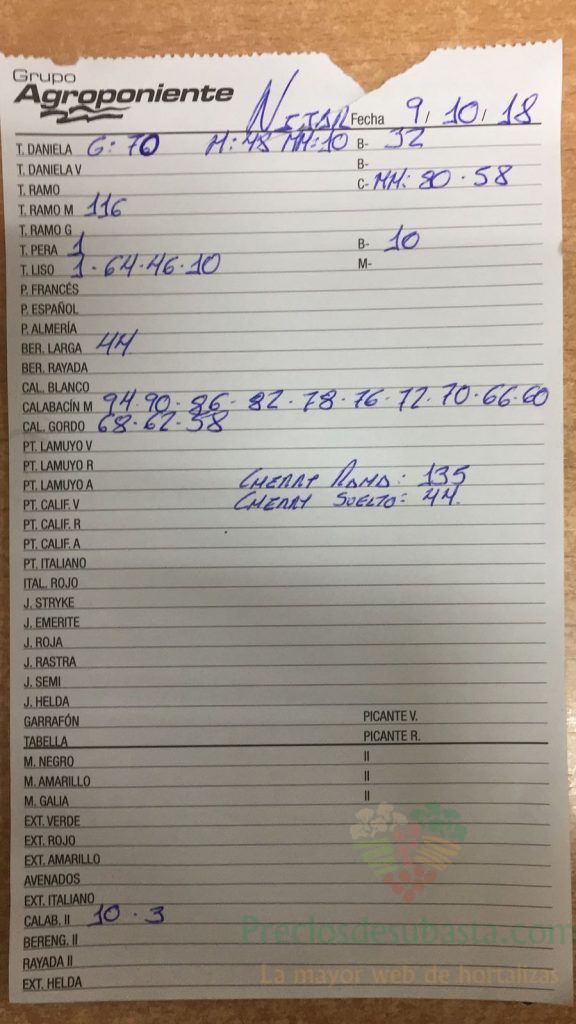 Grupo
Agroponiente
NIJAR Fecha 9/10/18
T. DANIELA G: 70 M: 48 MM: 10 B- 32
T. DANIELA V B-
T. RAMO C- MM: 80 · 58
T. RAMO M 116
T. RAMO G
T. PERA 1 B- 10
T. LISO 1 · 64 · 46 · 10 M-
P. FRANCÉS
P. ESPAÑOL
P. ALMERÍA
BER. LARGA 44
BER. RAYADA
CAL. BLANCO
CALABACÍN M 94 · 90 · 86 · 82 · 78 · 76 · 72 · 70 · 66 · 60
CAL. GORDO 68 · 62 · 58
PT. LAMUYO V
PT. LAMUYO R
PT. LAMUYO A CHERRY RAMA: 135
PT. CALIF. V CHERRY SUELTO: 44
PT. CALIF. R
PT. CALIF. A
PT. ITALIANO
ITAL. ROJO
J. STRYKE
J. EMERITE
J. ROJA
J. RASTRA
J. SEMI
J. HELDA
GARRAFÓN PICANTE V.
TABELLA PICANTE R.
M. NEGRO II
M. AMARILLO II
M. GALIA II
EXT. VERDE
EXT. ROJO
EXT. AMARILLO
AVENADOS
EXT. ITALIANO
CALAB. II 10 · 3
BERENG. II
RAYADA II
EXT. HELDA
Preciosdesubasta.com
La mayor web de hortalizas